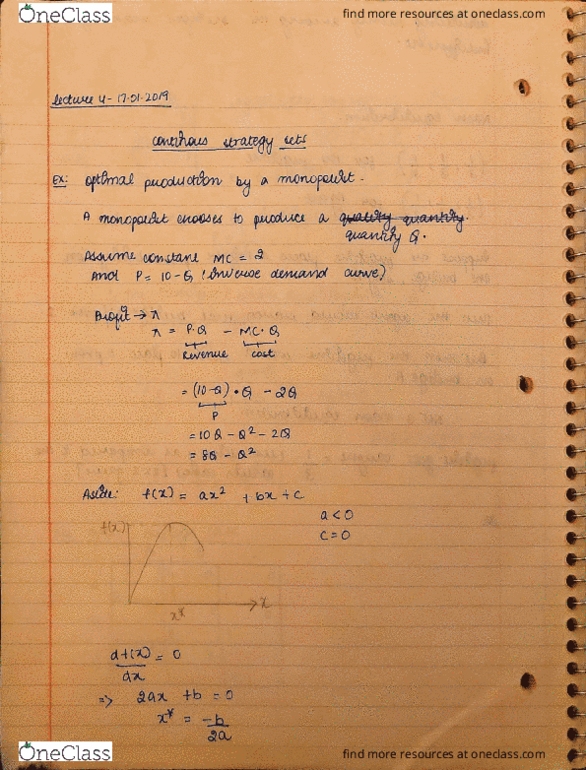 OneClass
find more resources at oneclass.com
Lecture 4 - 17.01.2019
continous strategy sets
EX: optimal production by a monopolist.
A monopolist chooses to produce a quality quantity.
quantity Q.
Assume constant MC = 2
and P = 10 - Q (Inverse demand curve)
Profit → π
π = P.Q - MC.Q
Revenue cost
= (10-Q) • Q - 2Q
P
= 10Q - Q² - 2Q
= 8Q - Q²
Aside: f(x) = ax² + bx + c
a < 0
f(x)
c = 0
x
x*
df(x) = 0
dx
=> 2ax + b = 0
x* = -b
2a
OneClass
find more resources at oneclass.com